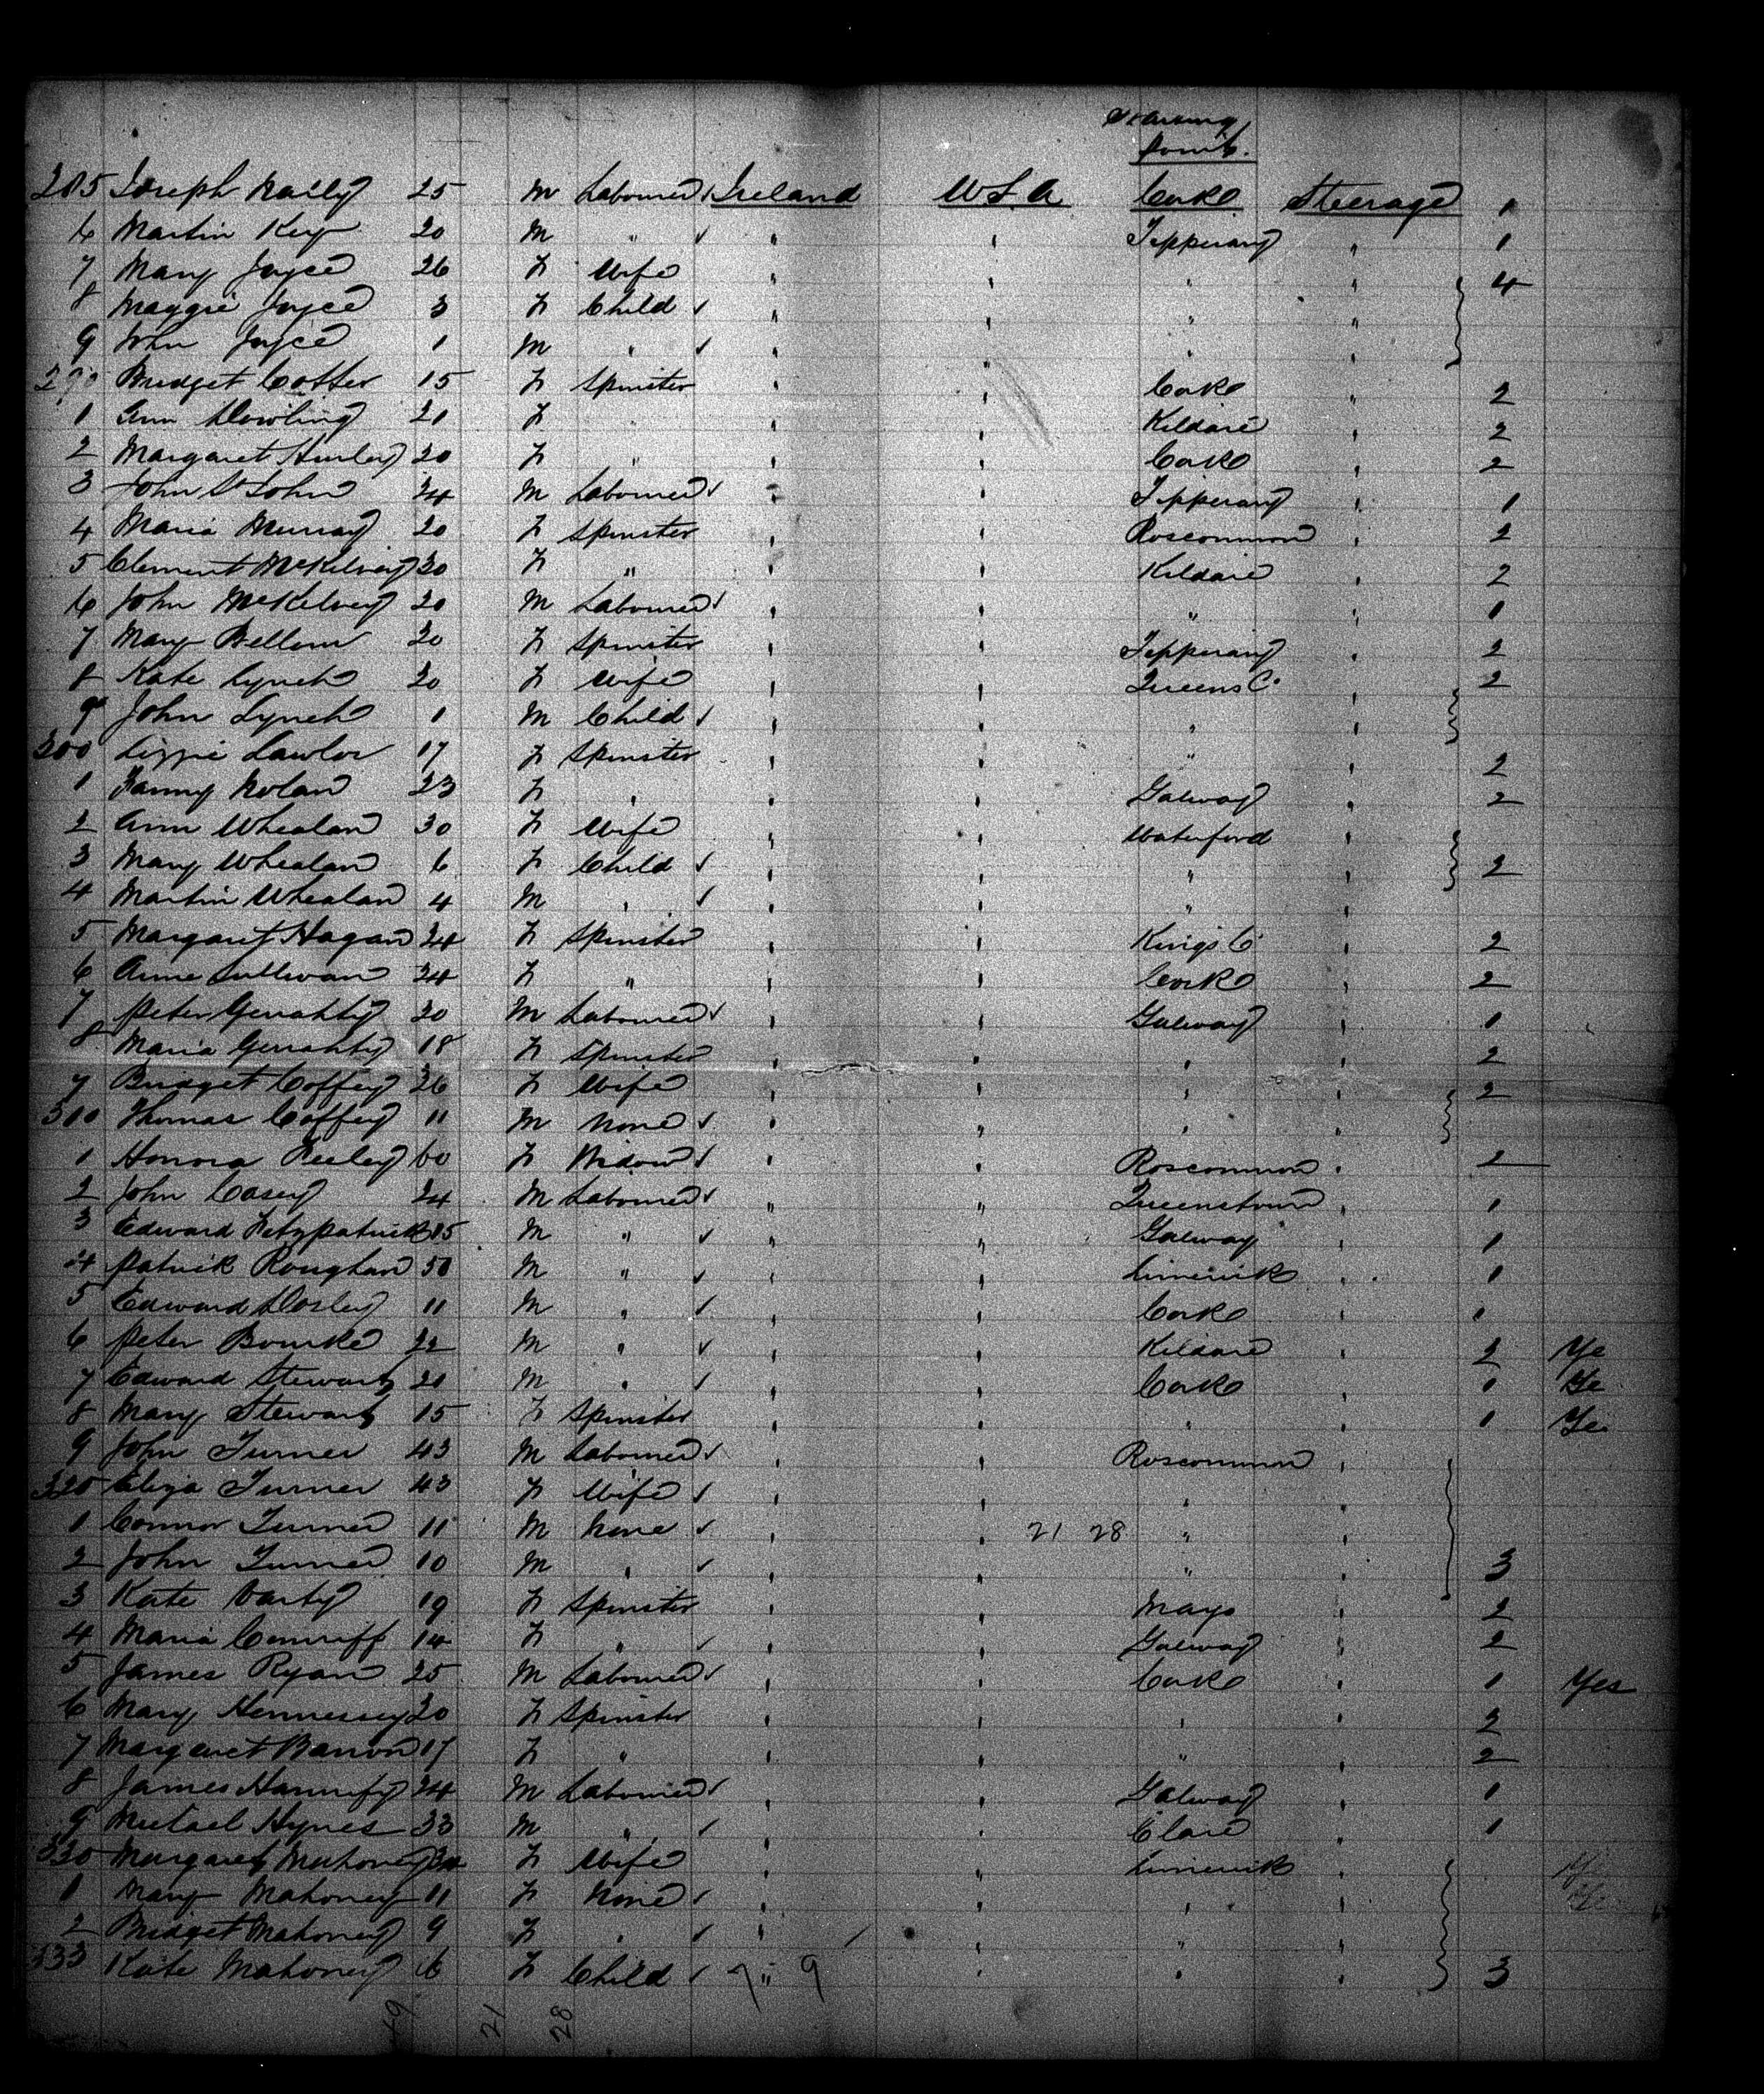 Starting
Point.
285 Joseph Naily 25 M Labourer Ireland U.S.A Cork Steerage 1
6 Martin Key 20 M " " " Tipperary " 1
7 Mary Joyce 26 F Wife " " " " 4
8 Maggie Joyce 3 F Child " " " "
9 John Joyce 1 M " " " " "
290 Bridget Cotter 15 F Spinster " " Cork " 2
1 Ann Dowling 21 F " " " Kildare " 2
2 Margaret Hurley 20 F " " " Cork " 2
3 John St John 24 M Labourer " " Tipperary " 1
4 Maria Murray 20 F Spinster " " Roscommon " 2
5 Clement McKelvey 30 F " " " Kildare " 2
6 John McKelvey 20 M Labourer " " " " 1
7 Mary 20 F Spinster " " Tipperary " 2
8 Kate Lynch 30 F Wife " " Queens Co " 2
9 John Lynch 1 M Child " " " "
300 Lizzie Lawlor 17 F Spinster " " " " 2
1 Fanny Nolan 23 F " " " Galway " 2
2 Ann Whealan 30 F Wife " " Waterford "
3 Mary Whealan 6 F Child " " " " 2
4 Martin Whealan 4 M " " " " "
5 Margaret Hagan 24 F Spinster " " Kings Co " 2
6 Anne Sullivan 24 F " " " Cork " 2
7 Peter Gerrahty 20 M Labourer " " Galway " 1
8 Maria Gerrahty 18 F Spinster " " " " 2
9 Bridget Coffey 36 F Wife " " " " 2
310 Thomas Coffey 11 M None " " " "
1 Honora 60 F Widow " " Roscommon " 2
2 John Casey 24 M Labourer " " Queenstown " 1
3 Edward Fitzpatrick 15 M " " " Galway " 1
4 Patrick Roughan 50 M " " " Limerick " 1
5 Edward 11 M " " " Cork " 1
6 Peter Bourke 22 M " " " Kildare " 2 Ye
7 Edward Stewart 21 M " " " Cork " 1 Ye
8 Mary Stewart 15 F Spinster " " " " 1 Ye
9 John Turner 43 M Labourer " " Roscommon "
320 Eliza Turner 43 F Wife " " " "
1 Connor Turner 11 M None " " 21 28 " "
2 John Turner 10 M " " " " " 3
3 Kate Varty 19 F Spinster " " Mayo " 2
4 Maria 14 F " " " Galway " 2
5 James Ryan 25 M Labourer " " Cork " 1 Yes
6 Mary Hennessey 20 F Spinster " " " " 2
7 Margaret Barron 17 F " " " " " 2
8 James Hannify 24 M Labourer " " Galway " 1
9 Michael Hynes 33 M " " " Clare " 1
330 Margaret Mahoney F Wife " " Limerick "
1 Mary Mahoney 11 F None " " " "
2 Bridget Mahoney 9 F " " " " "
333 Kate Mahoney 6 F Child " 9 " " " 3
49 21 28